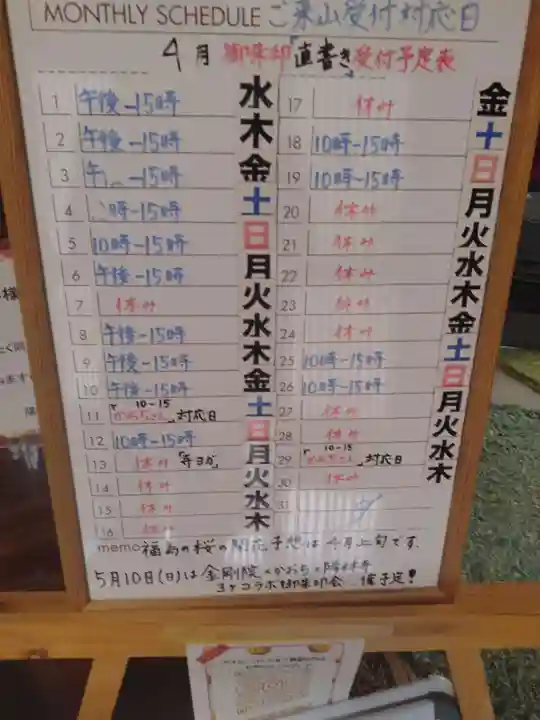 MONTHLY SCHEDULE ご来山受付対応日
4月 御朱印「直書き」受付予定表
1 午後-15時 水
2 午後-15時 木
3 -15時 金
4 時-15時 土
5 10時-15時 日
6 午後-15時 月
7 休み 火
8 午後-15時 水
9 午後-15時 木
10 午後-15時 金
11 10-15 対応日 土
12 10時-15時 日
13 休み 「寺ヨガ」 月
14 休み 火
15 休み 水
16 休み 木
17 休み 金
18 10時-15時 土
19 10時-15時 日
20 休み 月
21 休み 火
22 休み 水
23 休み 木
24 休み 金
25 10時-15時 土
26 10時-15時 日
27 休み 月
28 休み 火
29 10-15 対応日 水
30 休み 木
31
memo 福島の桜の開花予想は4月上旬です。
5月10日(日)は金剛院
コラボ御朱印会 予定!